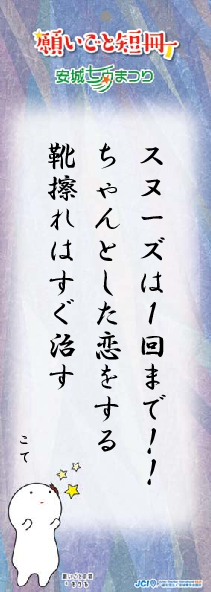 願いごと短冊
安城七夕まつり
スヌーズは1回まで！！
ちゃんとした恋をする
靴擦れはすぐ治す
こて
JCI